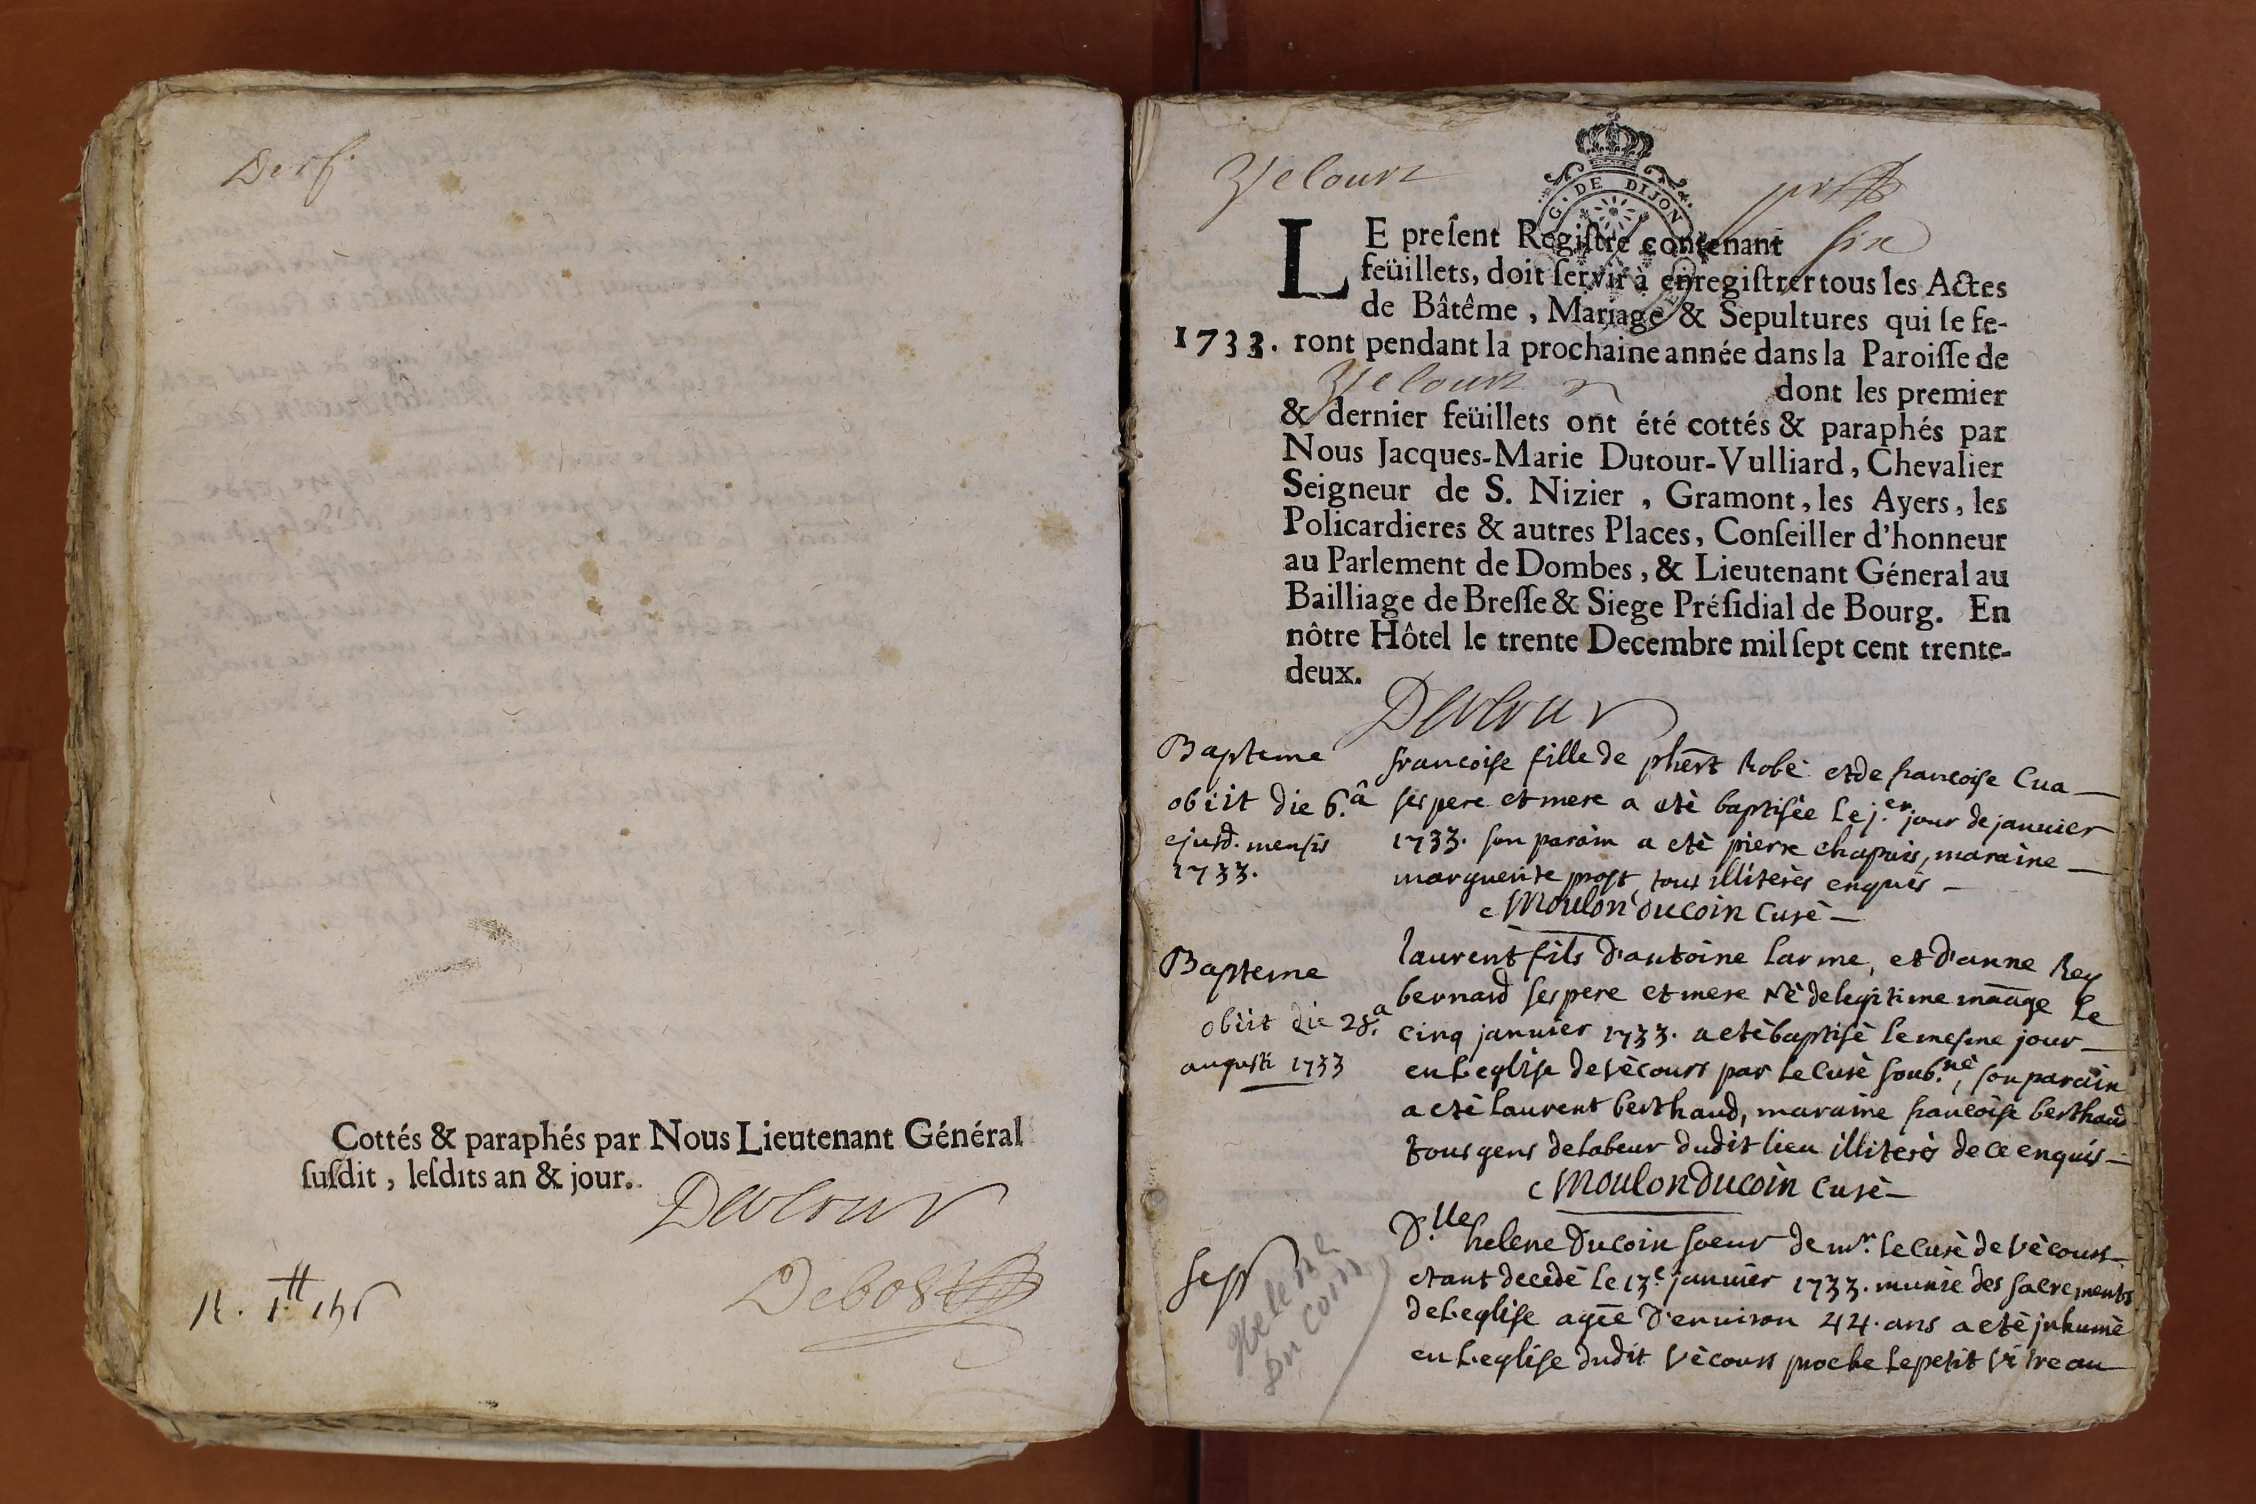 Derf.
Cottés & paraphés par Nous Lieutenant Général
ſuſdit, leſdits an & jour.
Dutour
Debost
R. 1.tt
Vecours
G. DE DIJON
prem
LE preſent Regiſtre contenant six
feüillets, doit ſervir à enregiſtrer tous les Actes
de Bâtême, Mariage & Sepultures qui ſe fe-
1733. ront pendant la prochaine année dans la Paroiſſe de
Vecours dont les premier
& dernier feüillets ont été cottés & paraphés par
Nous Jacques-Marie Dutour-Vulliard, Chevalier
Seigneur de S. Nizier, Gramont, les Ayers, les
Policardieres & autres Places, Conſeiller d'honneur
au Parlement de Dombes, & Lieutenant Géneral au
Bailliage de Breſſe & Siege Préſidial de Bourg. En
nôtre Hôtel le trente Decembre mil ſept cent trente-
deux.
Dutour
Bapteme
obiit die 6.a
ejusd. mensis
1733.
francoise fille de phērt Robé et de francoise Cua
ses pere et mere a eté baptisée le j.er jour de janvier
1733. son parain a eté pierre chapuis, maraine
marguerite prost, tous illiterés enquis
Moulon Ducoin Curé
Bapteme
obiit die 28.a
augusti 1733
laurent fils d'antoine larme, et d'anne Rey
bernard ses pere et mere né de legitime māage le
cinq janvier 1733. a eté baptisé le mesme jour
en l'eglise de vécours par le curé soub.né, son parain
a eté laurent berthaud, maraine francoise berthaud
tous gens de labeur dudit lieu illiterés de ce enquis
Moulon Ducoin Curé
sep
Helene
Du coin
D.lle helene Ducoin soeur de mr. le curé de vécours
etant decedé le 13.e janvier 1733. munie des sacrements
de l'eglise agée d'environ 44. ans a eté jnhumé
en l'eglise dudit vécours proche le petit vitreau